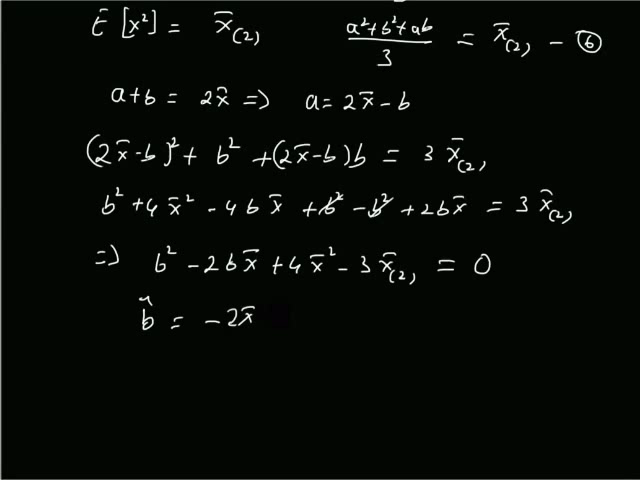 E [x²] = x̄₍₂₎   (a²+b²+ab)/3 = x̄₍₂₎ – ⑥
a+b = 2x̄ => a = 2x̄ – b
(2x̄–b)² + b² + (2x̄–b)b = 3 x̄₍₂₎
b² + 4x̄² – 4bx̄ + b² – b² + 2bx̄ = 3 x̄₍₂₎
=> b² – 2bx̄ + 4x̄² – 3x̄₍₂₎ = 0
b̂ = – 2x̄